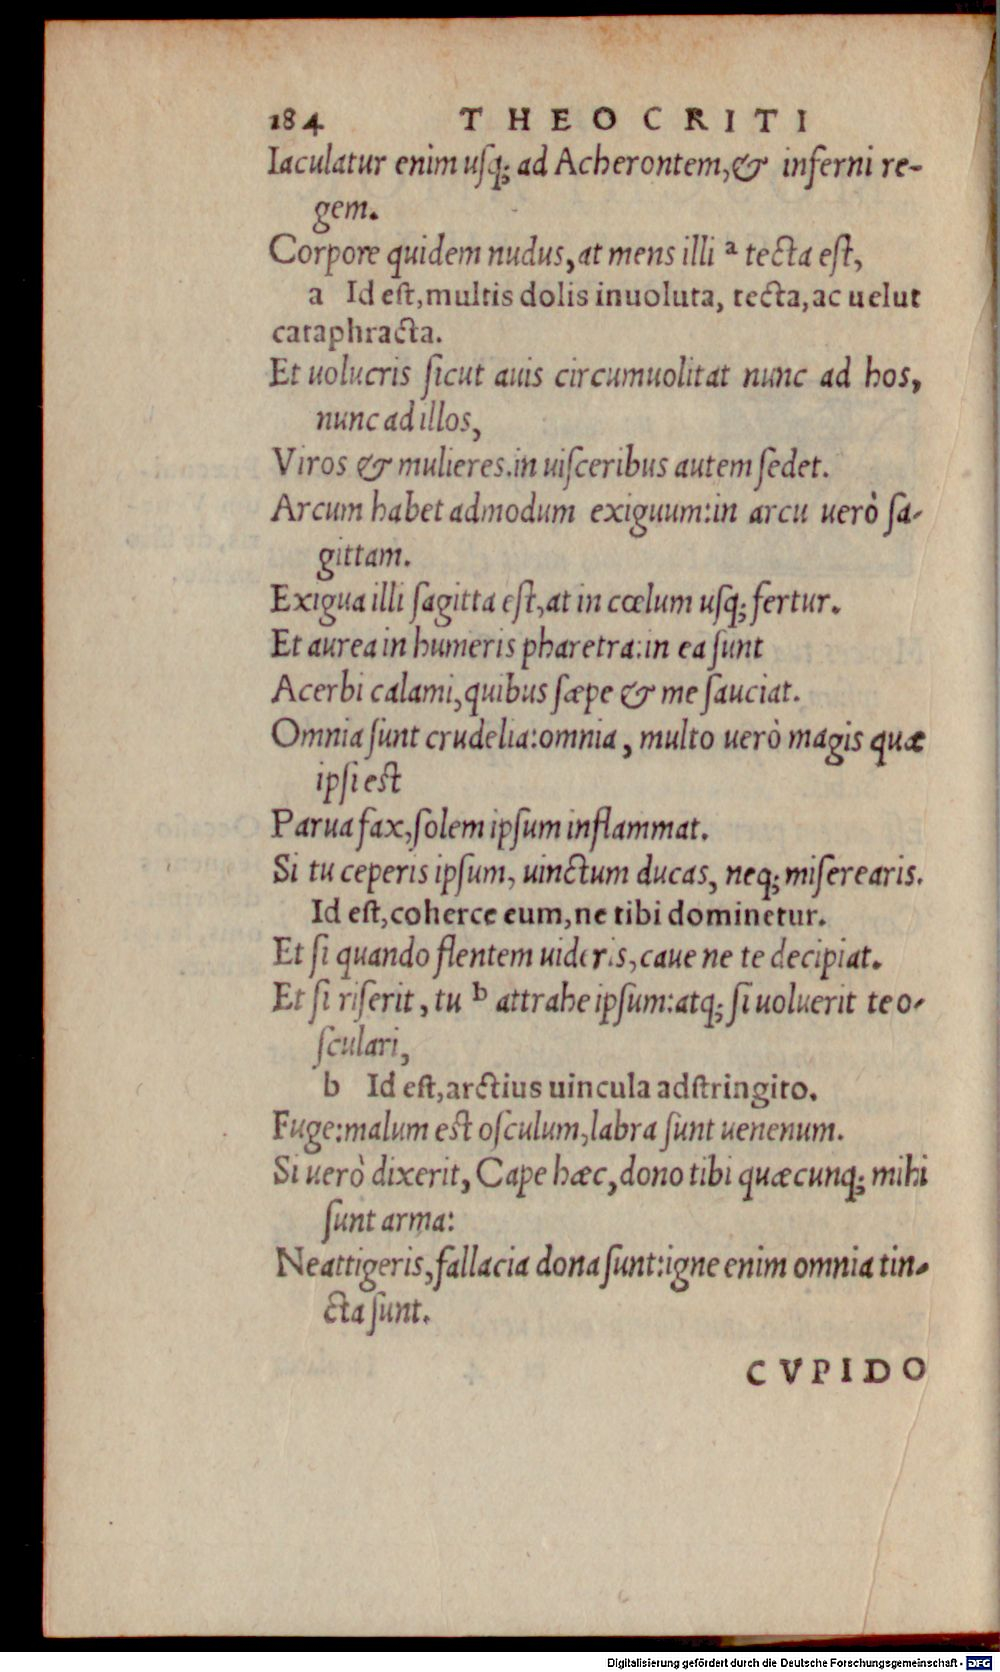 184 THEOCRITI
Iaculatur enim usq; ad Acherontem, & inferni re-
gem.
Corpore quidem nudus, at mens illi a tecta est,
a Id est, multis dolis inuoluta, tecta, ac uelut
cataphracta.
Et uolucris sicut auis circumuolitat nunc ad hos,
nunc ad illos,
Viros & mulieres. in uisceribus autem sedet.
Arcum habet admodum exiguum: in arcu uerò sa-
gittam.
Exigua illi sagitta est, at in cœlum usq; fertur.
Et aurea in humeris pharetra: in ea sunt
Acerbi calami, quibus sæpe & me sauciat.
Omnia sunt crudelia: omnia, multo uerò magis quæ
ipsi est
Parua fax, solem ipsum inflammat.
Si tu ceperis ipsum, uinctum ducas, neq; miserearis.
Id est, coherce eum, ne tibi dominetur.
Et si quando flentem uideris, caue ne te decipiat.
Et si riserit, tu b attrahe ipsum: atq; si uoluerit te o-
sculari,
b Id est, arctius uincula adstringito.
Fuge: malum est osculum, labra sunt uenenum.
Si uerò dixerit, Cape hæc, dono tibi quæcunq; mihi
sunt arma:
Ne attigeris, fallacia dona sunt: igne enim omnia tin-
cta sunt.
CVPIDO
Digitalisierung gefördert durch die Deutsche Forschungsgemeinschaft - DFG